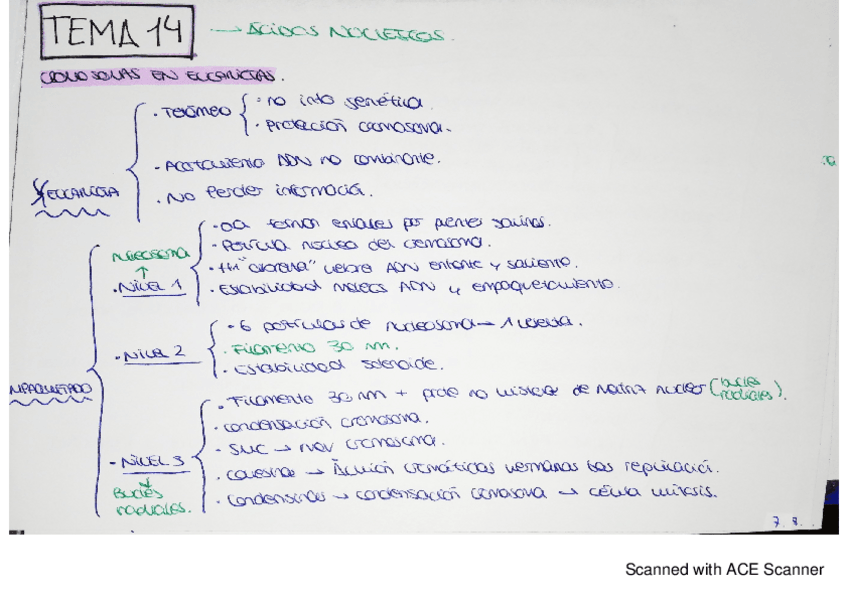 TEMA 14 → ÁCIDOS NUCLEICOS.
CROMOSOMAS EN EUCARIOTAS.
· TELÓMERO
· no info genética
· protección cromosoma.
· Acortamiento ADN no codificante.
EUCARIOTA
· No perder información.
· forman enlaces por puentes salinos.
Nucleosoma
· Partícula núcleo del cromosoma.
↑
· H1 "abraza" hebra ADN entrante y saliente.
· Nivel 1
· Estabilidad ADN y empaquetamiento.
· 6 partículas de nucleosoma → 1 vuelta.
· Nivel 2
· Filamento 30 nm.
· Estabilidad solenoide.
MPAQUETADO
· Filamento 30 nm + no histonas de matriz nuclear (bucles radiales).
· condensación cromosoma.
· SMC → mov cromosoma.
· Nivel 3
· cohesinas → unión cromátidas hermanas tras replicación.
↓
Bucles radiales.
· condensinas → condensación cromosoma → célula mitosis.
Scanned with ACE Scanner